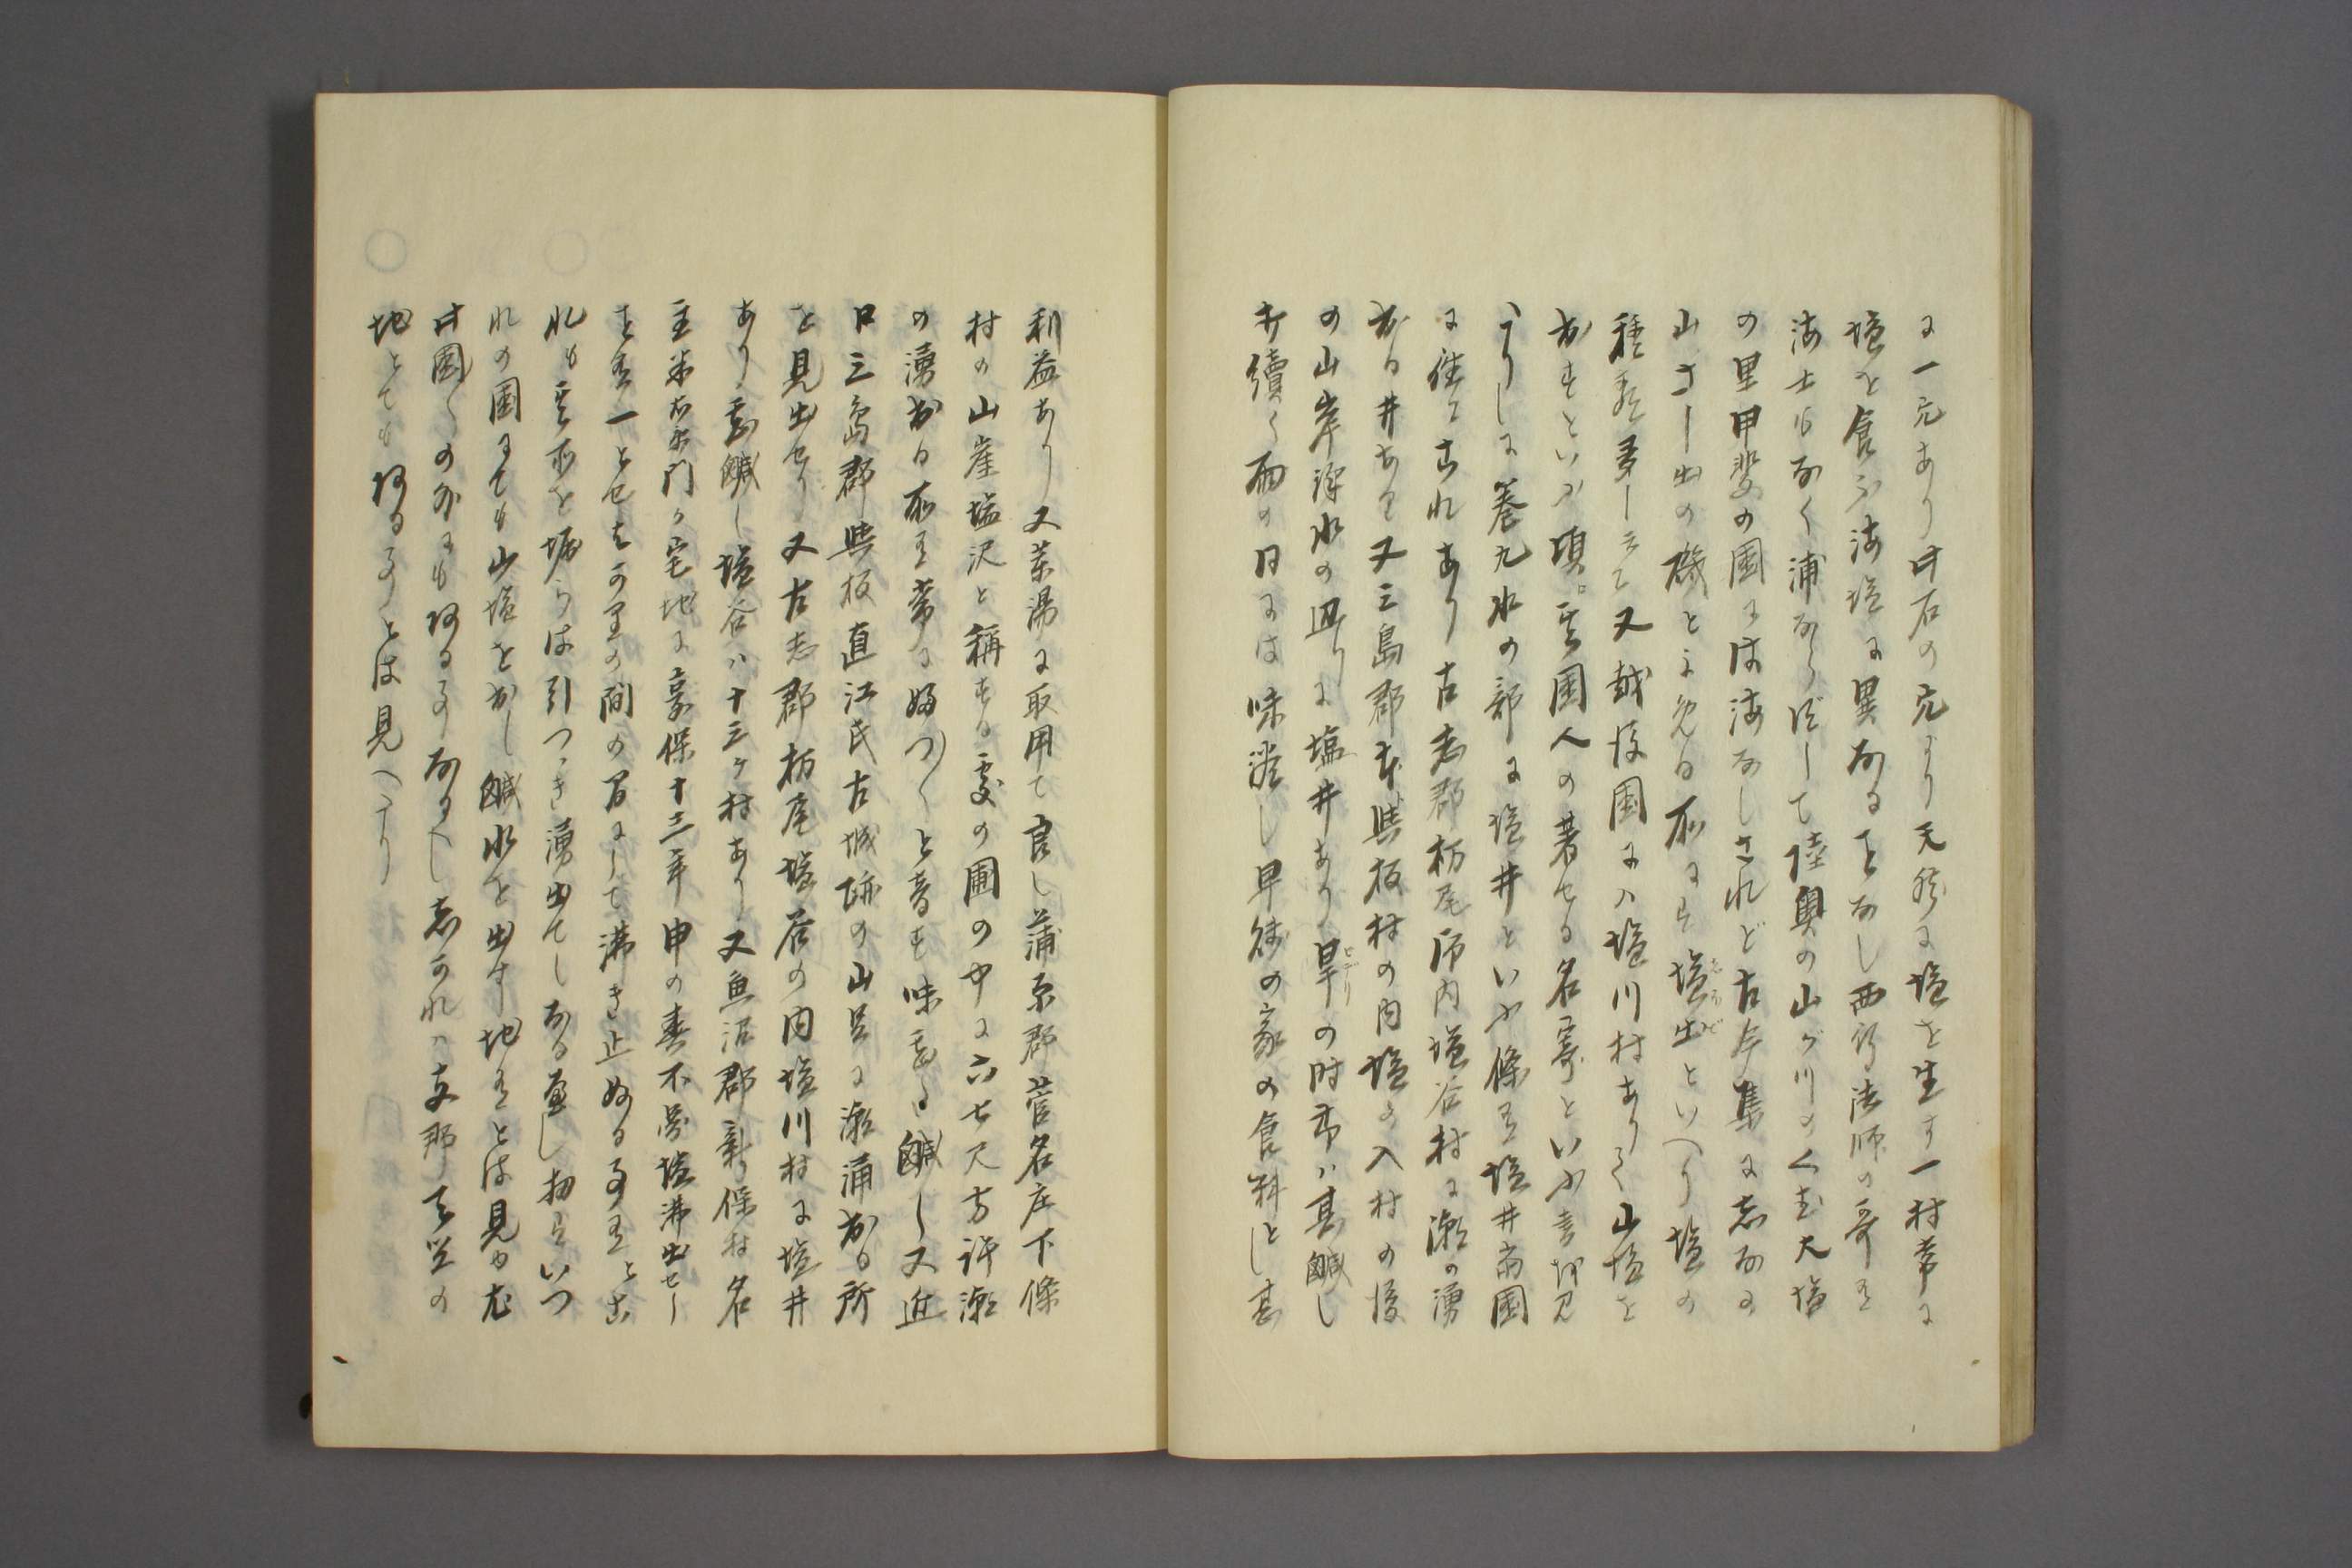 に一穴あり此石の穴より天然に塩を生す一村常に
塩を食ふ海塩に異なることなし西行法師の哥に
海士もなく浦ならずして陸奥の山がつのくむ大塩
の里甲斐の国には海なしされど古今集に志ほの
山さし出の磯とよめる所にも塩出といへり塩の
種類多し又越後国には塩川村ありて山塩を
出すといふ頃其国人の著せる名寄といふ書
に巻九水の部に塩井といふ條に塩井当国
に往々これあり古志郡栃尾郷内塩谷村に潮の湧
出る井あり又三島郡本与板村の内塩の入村の後
の山岸深水の辺りに塩井あり旱の時節は甚鹹し
打続く雨の日には味淡し早行の家の食料とし甚
利益あり又薬湯に取用て良し蒲原郡菅名庄下條
村の山崖塩沢と称する処の圃の中に六七尺方許潮
の湧出る所に常にぶつ〳〵と音す味甚た鹹し又近
口三島郡与板直江氏古城跡の山足に潮涌出る所
を見出せり又古志郡栃尾塩谷の内塩川村に塩井
あり甚鹹し塩谷ハ十三ヶ村あり又魚沼郡新保村名
主米右衛門か宅地に享保十三年申の春不図塩沸出せし
の間にして沸き止める事
れも其所を掘らは引つゝき湧出てしなる
れの国にても山塩を出し鹹水を出す地
此国々の外にも有る事なるへし志かれハ支那天竺の
地とても有ることは見へたり